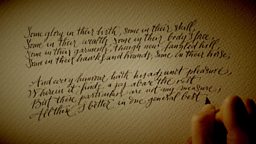 Some glory in their birth, some in their skill,
Some in their wealth, some in their body's force,
Some in their garments, though new-fangled ill,
Some in their hawks and hounds, some in their horse;
And every humour hath his adjunct pleasure,
Wherein it finds a joy above the rest.
But these particulars are not my measure;
All these I better in one general best